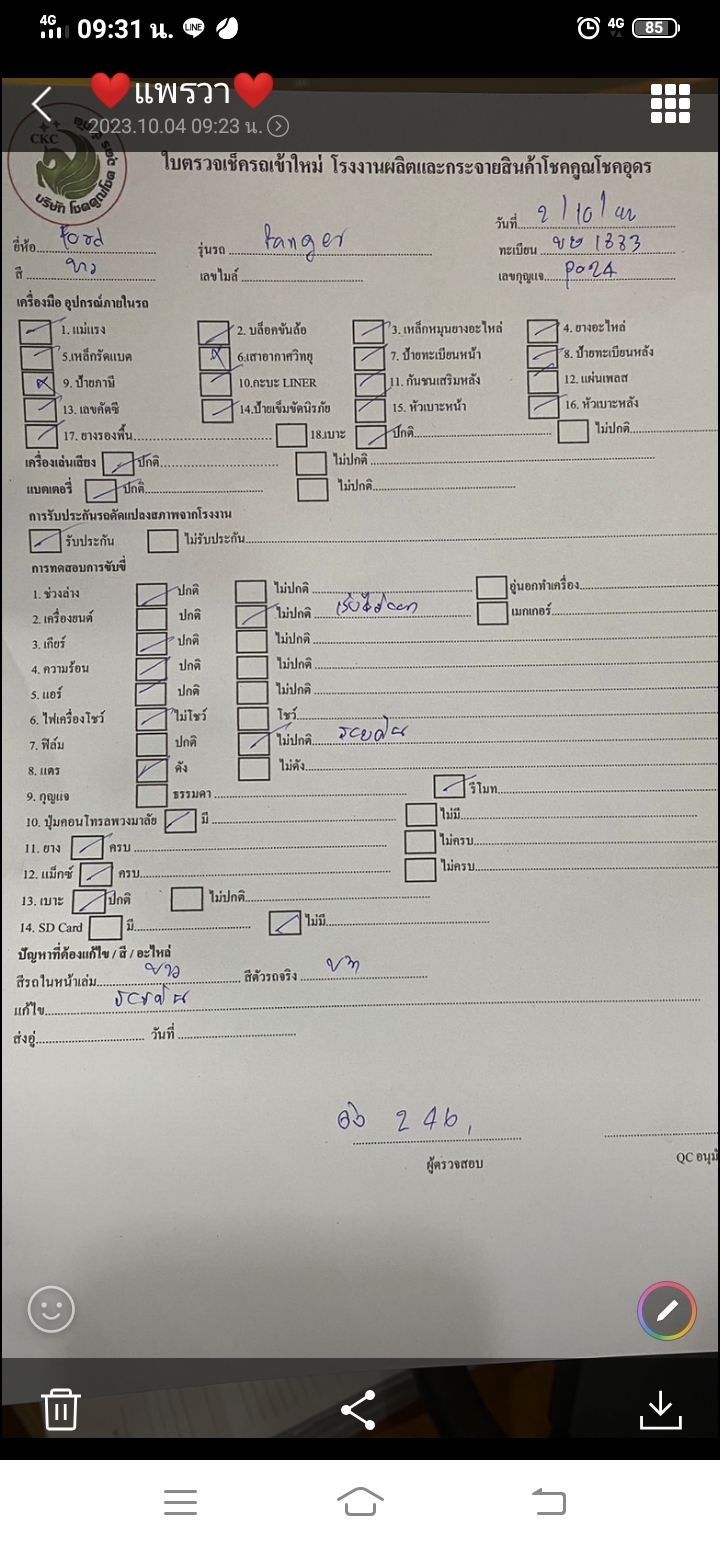 4G 09:31 น. LINE 4G 85
❤️แพรวา❤️
2023.10.04 09:23 น.
CKC
บริษัท โชคคูณโชค
ใบตรวจเช็ครถเข้าใหม่ โรงงานผลิตและกระจายสินค้าโชคคูณโชคอุดร
วันที่ 2/10/
ยี่ห้อ Ford รุ่นรถ Ranger ทะเบียน 1333
สี ขาว เลขไมล์ เลขกุญแจ P024
เครื่องมือ อุปกรณ์ภายในรถ
1. แม่แรง 2. บล็อคขันล้อ 3. เหล็กหมุนยางอะไหล่ 4. ยางอะไหล่
5.เหล็กรัดแบต 6.เสาอากาศวิทยุ 7. ป้ายทะเบียนหน้า 8. ป้ายทะเบียนหลัง
9. ป้ายภาษี 10.กะบะ LINER 11. กันชนเสริมหลัง 12. แผ่นเพลส
13. เลขคัตซี 14.ป้ายเข็มขัดนิรภัย 15. หัวเบาะหน้า 16. หัวเบาะหลัง
17. ยางรองพื้น 18.เบาะ ปกติ ไม่ปกติ
เครื่องเล่นเสียง ปกติ ไม่ปกติ
แบตเตอรี่ ปกติ ไม่ปกติ
การรับประกันรถดัดแปลงสภาพจากโรงงาน
รับประกัน ไม่รับประกัน
การทดสอบการขับขี่
1. ช่วงล่าง ปกติ ไม่ปกติ อู่นอกทำเครื่อง
2. เครื่องยนต์ ปกติ ไม่ปกติ เมกเกอร์
3. เกียร์ ปกติ ไม่ปกติ
4. ความร้อน ปกติ ไม่ปกติ
5. แอร์ ปกติ ไม่ปกติ
6. ไฟเครื่องโชว์ ไม่โชว์ โชว์
7. ฟิล์ม ปกติ ไม่ปกติ
8. แตร ดัง ไม่ดัง
9. กุญแจ ธรรมดา รีโมท
10. ปุ่มคอนโทรลพวงมาลัย มี ไม่มี
11. ยาง ครบ ไม่ครบ
12. แม็กซ์ ครบ ไม่ครบ
13. เบาะ ปกติ ไม่ปกติ
14. SD Card มี ไม่มี
ปัญหาที่ต้องแก้ไข / สี / อะไหล่
สีรถในหน้าเล่ม ขาว สีตัวรถจริง ขาว
แก้ไข
ส่งอู่ วันที่
246,
ผู้ตรวจสอบ QC อนุมั